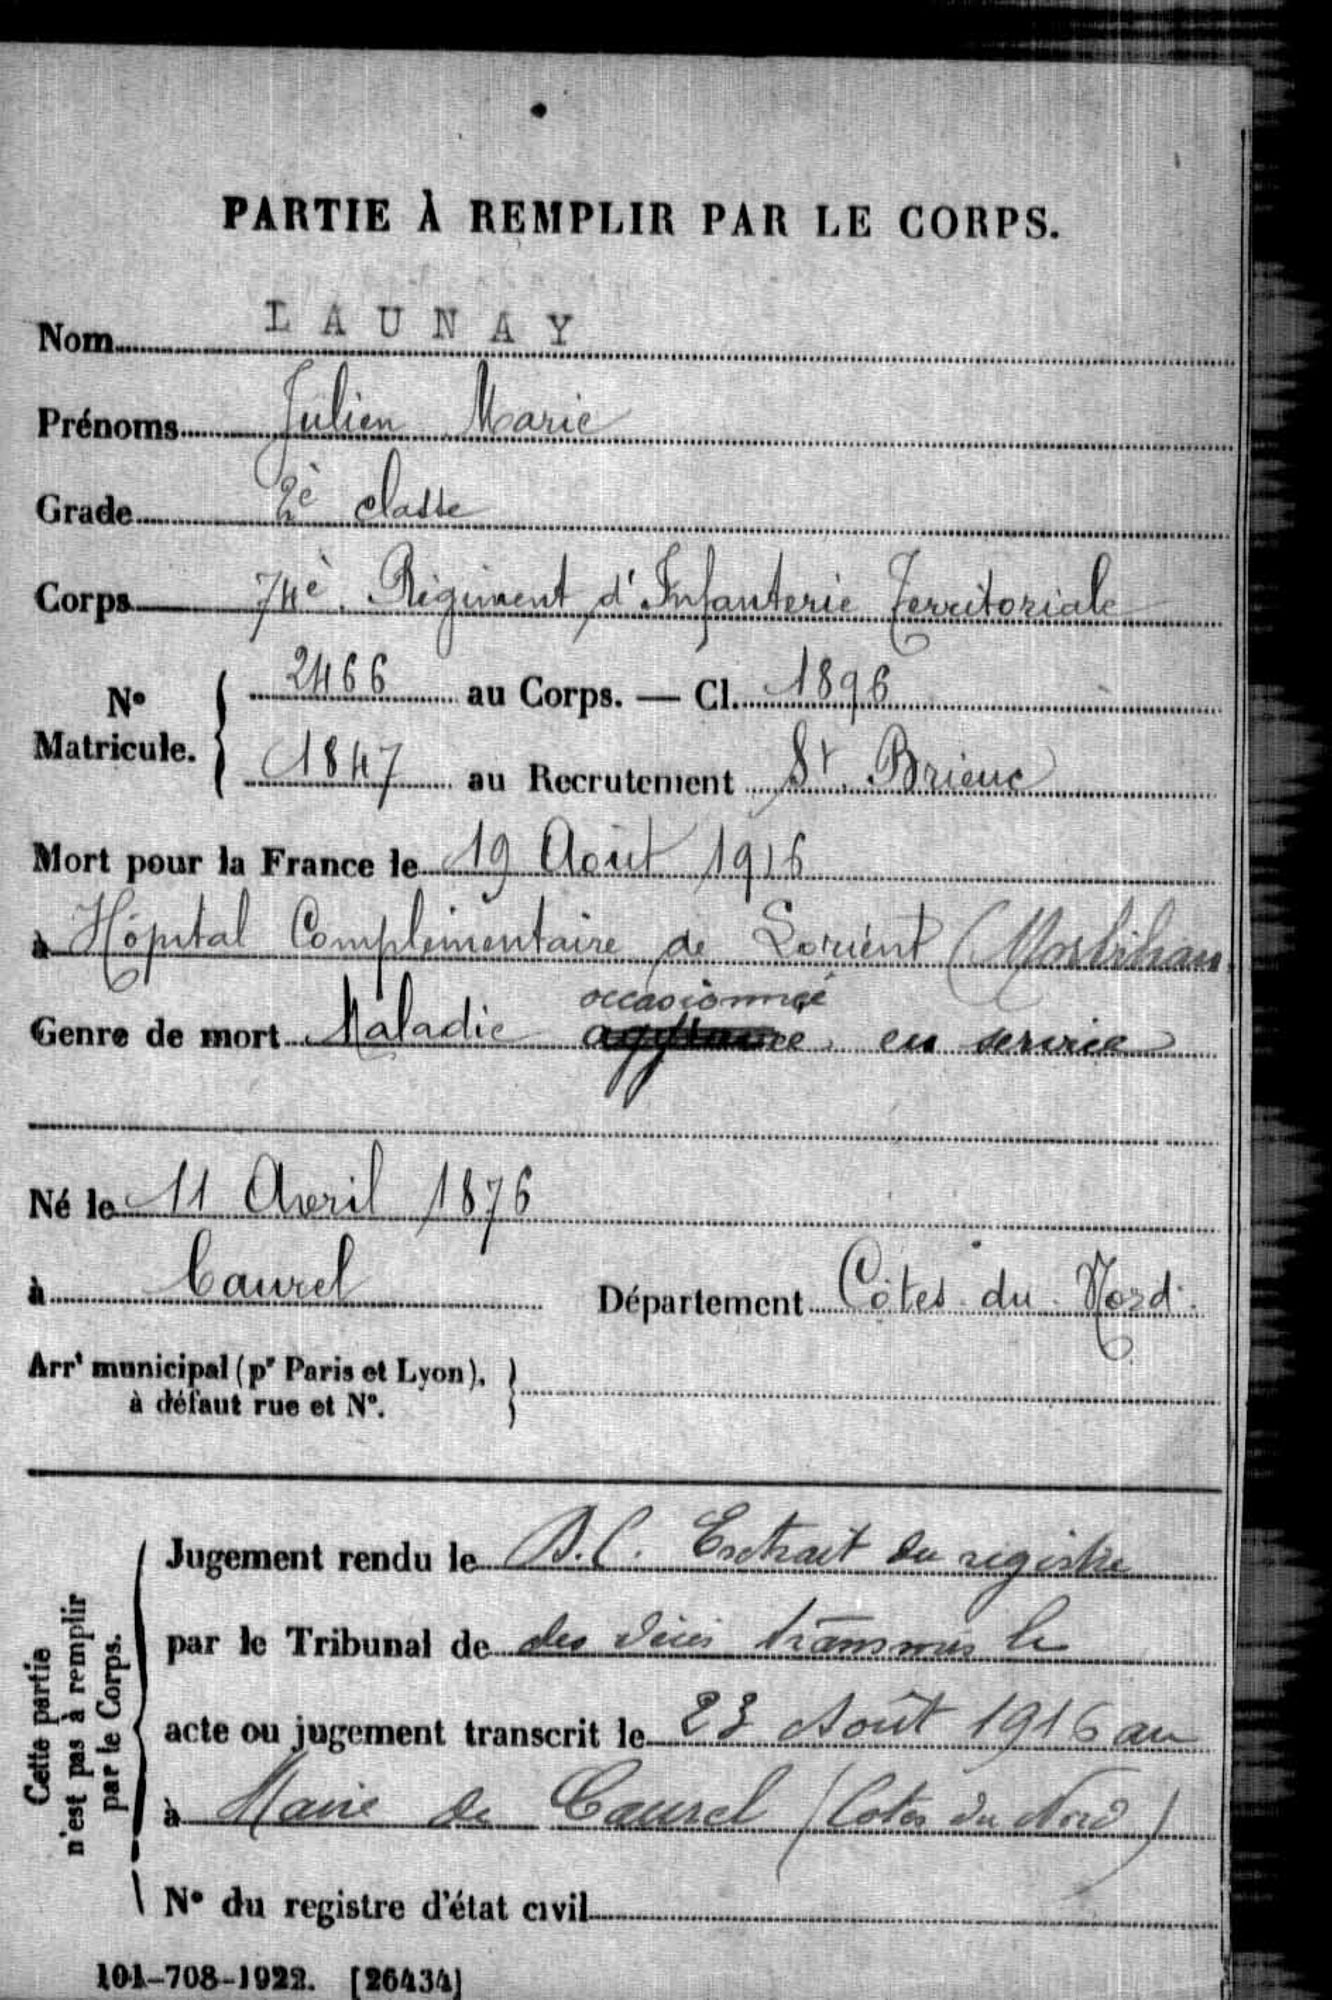 PARTIE À REMPLIR PAR LE CORPS.
Nom LAUNAY
Prénoms Julien Marie
Grade 2è classe
Corps 74è Régiment d'Infanterie Territoriale
N° Matricule. { 2466 au Corps. — Cl. 1896
1847 au Recrutement St Brieuc
Mort pour la France le 19 Août 1916
à Hôpital Complémentaire de Lorient (Morbihan
occasionnée
Genre de mort Maladie en service
Né le 11 Avril 1876
à Caurel Département Côtes du Nord.
Arrt municipal (pr Paris et Lyon), }
à défaut rue et N°.
Cette partie
n'est pas à remplir
par le Corps.
Jugement rendu le D.C. Extrait du registre
par le Tribunal de des décès transmis le
acte ou jugement transcrit le 23 Août 1916 au
à Maire de Caurel (Cotes du Nord)
N° du registre d'état civil
101-708-1922. [26434]